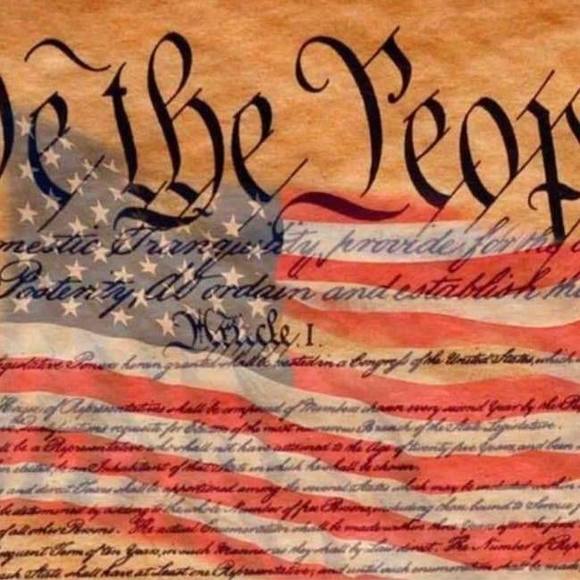 We the Peop
mestic Tranquility, provide for the
Posterity, do ordain and establish th
Article. I.
Legislative Powers herein granted shall be vested in a Congress of the United States, which
House of Representatives shall be composed of Members chosen every second Year by the Peo
requisite for Electors of the most numerous Branch of the State Legislature.
shall be a Representative who shall not have attained to the Age of twenty five Years, and been
elected, be an Inhabitant of that State in which he shall be chosen.
and direct Taxes shall be apportioned among the several States which may be included within
be determined by adding to the whole Number of free Persons, including those bound to Service
of all other Persons. The actual Enumeration shall be made within three Years after the first
sequent Term of ten Years, in such Manner as they shall by Law direct. The Number of Repr
State shall have at Least one Representative; and until such enumeration shall be made